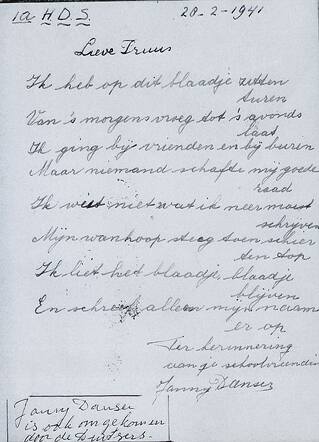 1a H.D.S. 20-2-1941
Lieve Truus
Ik heb op dit blaadje zitten
turen
Van 's morgens vroeg tot 's avonds
laat
Ik ging bij vrienden en bij buren
Maar niemand schafte mij goede
raad
Ik wist niet wat ik neer moest
schrijven
Mijn wanhoop steeg toen schier
ten top
Ik liet het blaadje, blaadje
blijven
En schreef alleen mijn naam
er op
Ter herinnering
aan je schoolvriendin
Janny Danser
Janny Danser
is ook omgekomen
door de Duitsers.